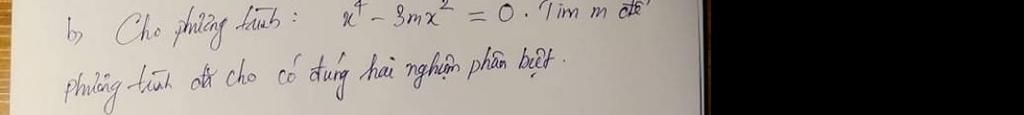 b) Cho phương trình : x⁴ - 3mx² = 0 . Tìm m để
phương trình đã cho có đúng hai nghiệm phân biệt .